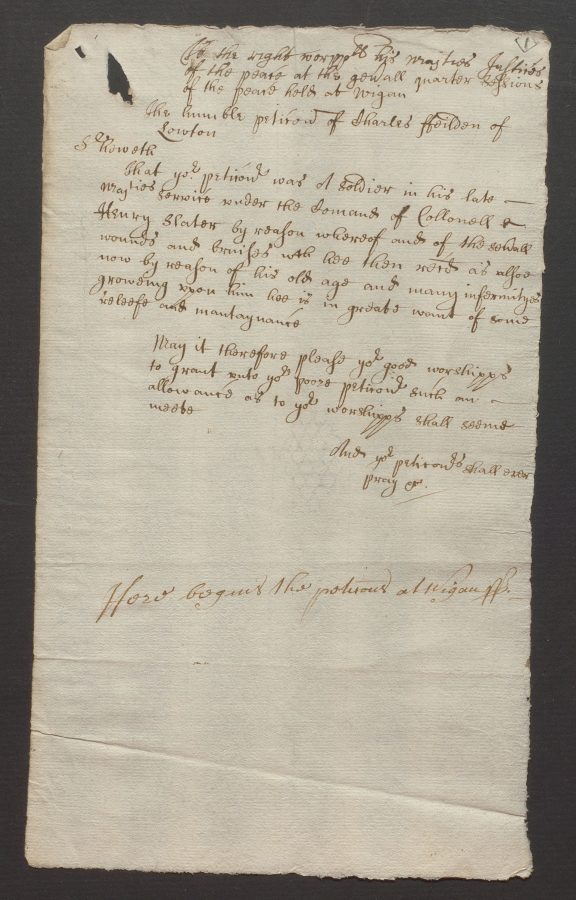 1
To the right worpplls his majties Justices
of the peace at the genall quarter sessions
of the peace held at wigan
The humble peticon of Charles ffeilden of
Lowton
Sheweth
That yor peticonr was A soldier in his late
majties service under the Comand of Collonell
Henry Slater by reason whereof and of the sevall
wounds and bruises wch hee then recd as alsoe
now by reason of his old age and many infermityes
groweing upon him hee is in greate want of some
releefe and mantaynance
May it therefore please yor good worshipps
to grant unto yor poore peticonr such an
allowance as to yor worshipps shall seeme
meete
And yor peticonrs shall ever
pray &c.
Here begins the peticons at Wigan